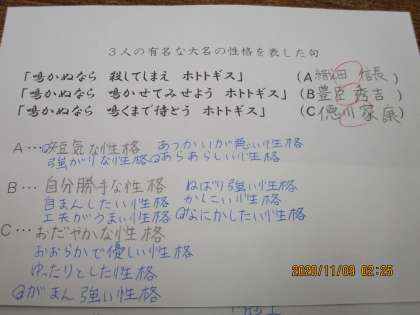 3人の有名な大名の性格を表した句
「鳴かぬなら 殺してしまえ ホトトギス」 (A 織田 信長)
「鳴かぬなら 鳴かせてみせよう ホトトギス」 (B 豊臣 秀吉)
「鳴かぬなら 鳴くまで待とう ホトトギス」 (C 徳川 家康)
A…短気な性格 あつかいが悪い性格
強がりな性格 あらあらしい性格
B…自分勝手な性格 ねばり強い性格
自まんしたい性格 かしこい性格
工夫がうまい性格 なにかしたい性格
C…おだやかな性格
おおらかで優しい性格
ゆったりとした性格
がまん強い性格
2020/11/09 02:25